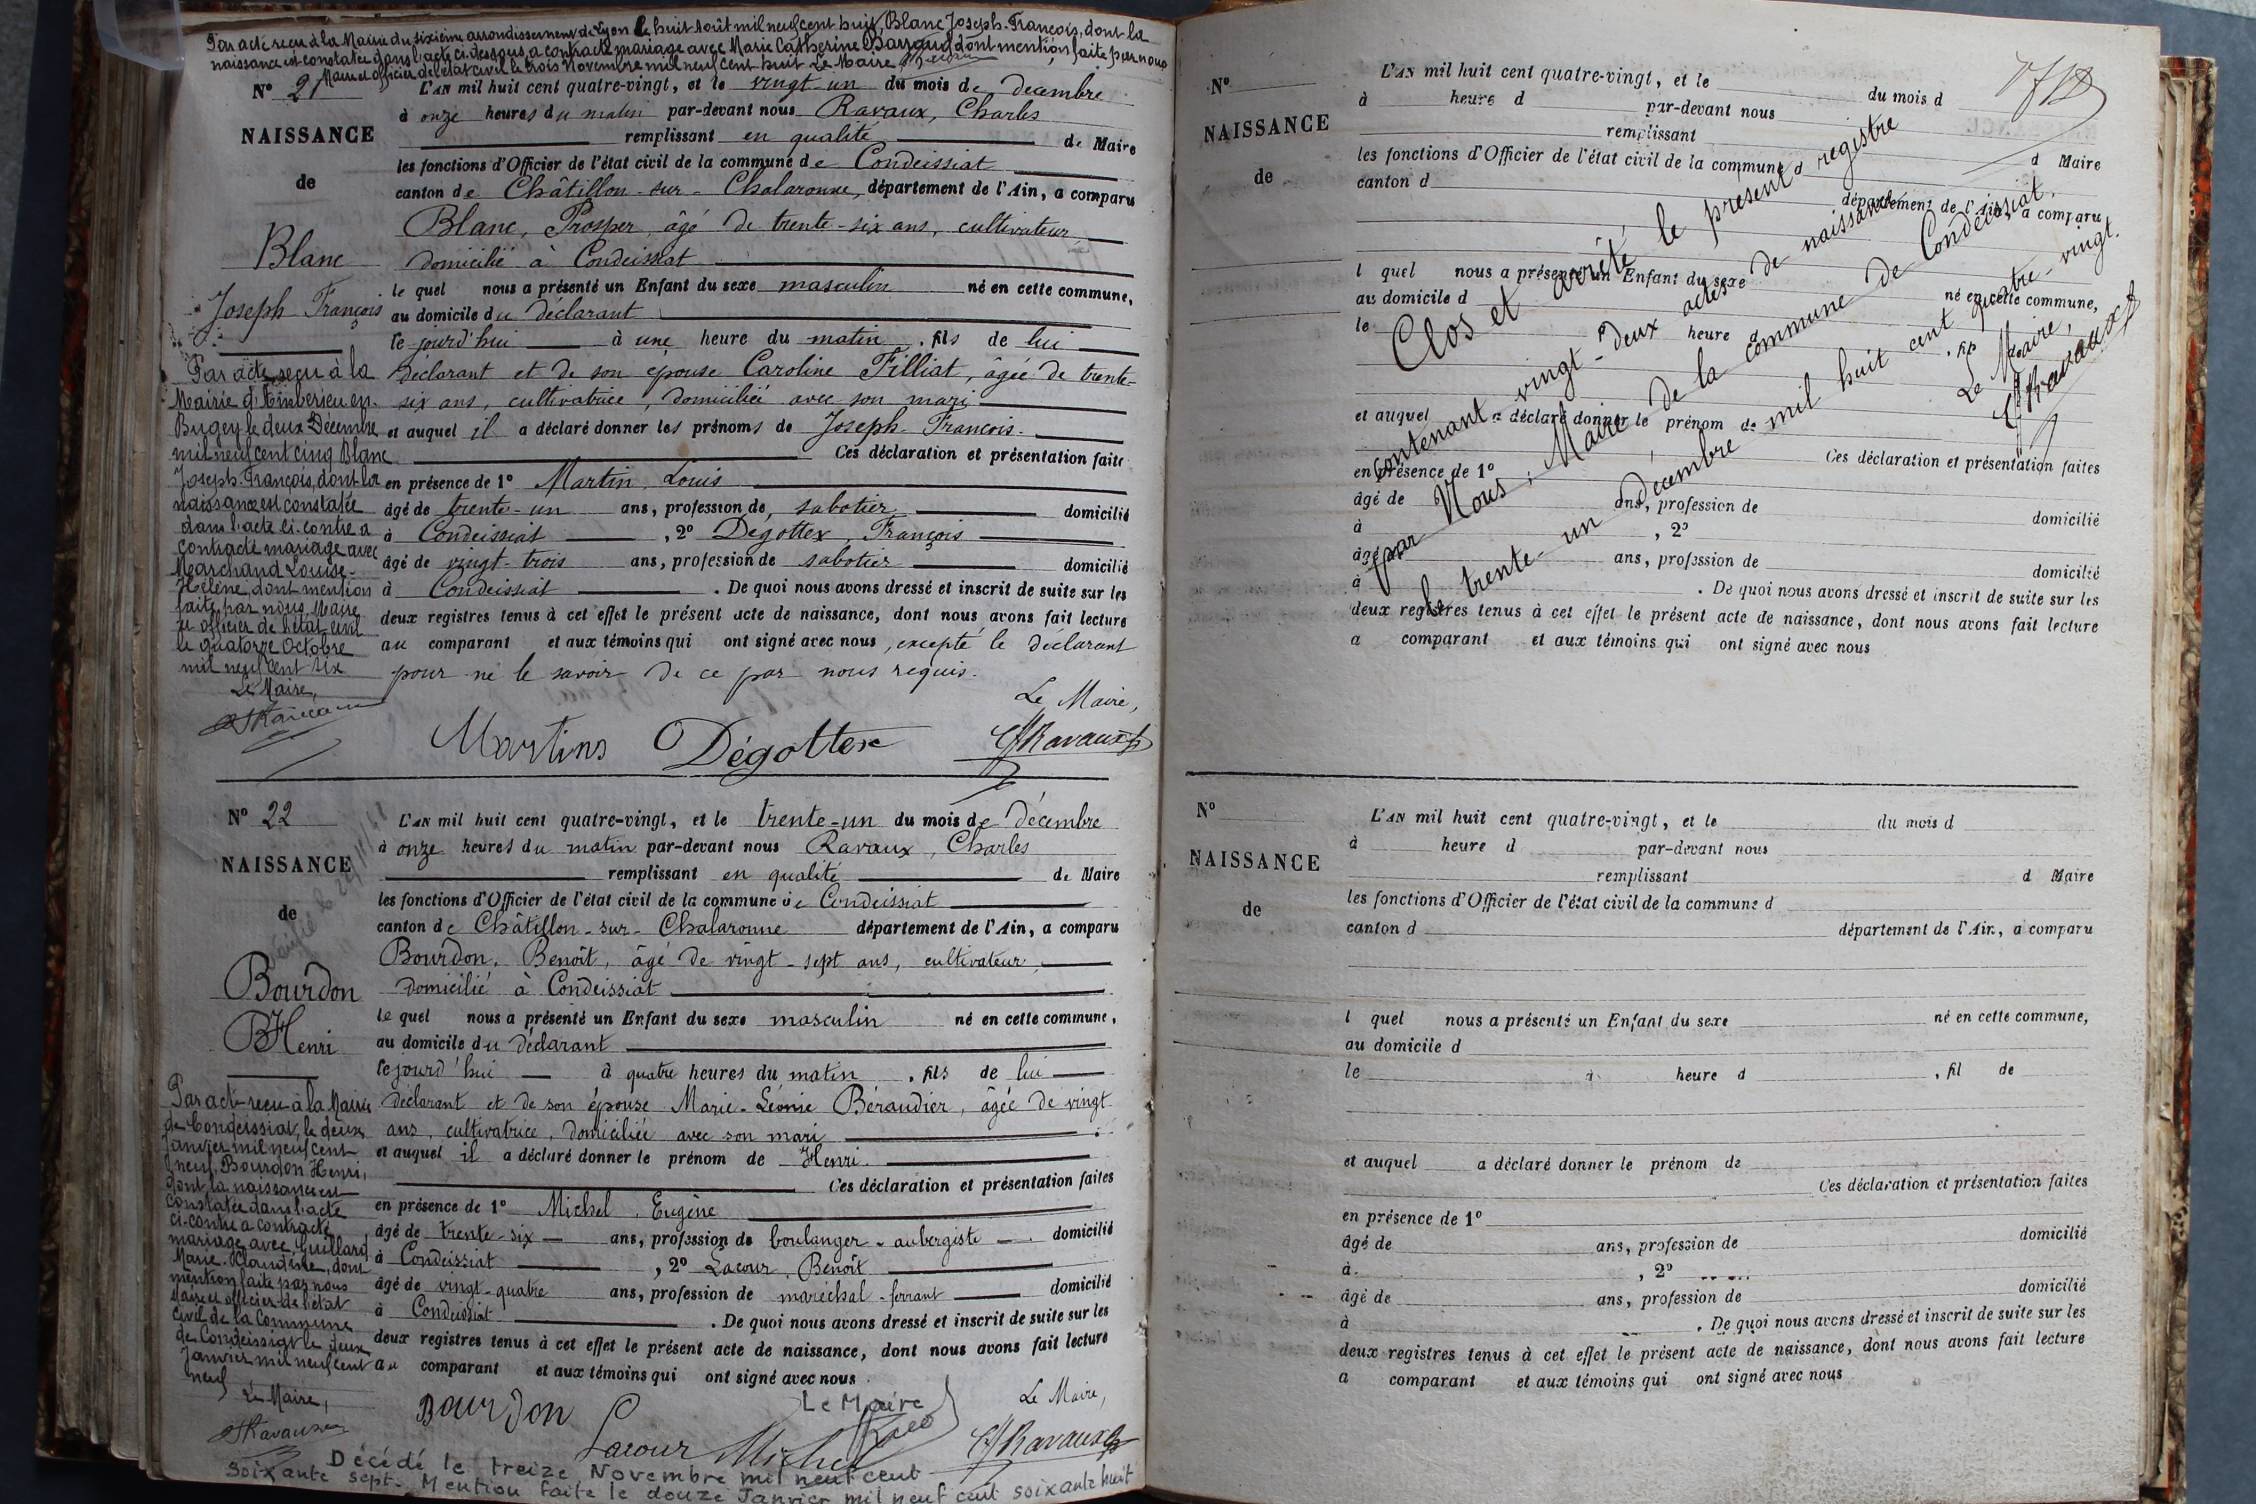 Par acte reçu à la Mairie du sixième arrondissement de Lyon le huit août mil neuf cent huit, Blanc Joseph-François, dont la
naissance est constatée dans l'acte ci-dessous, a contracté mariage avec Marie Catherine Barraud dont mention faite par nous
Maire et officier de l'état civil le trois Novembre mil neuf cent huit Le Maire
N° 21
NAISSANCE
de
Blanc
Joseph François
L'AN mil huit cent quatre-vingt, et le vingt-un du mois de décembre
à onze heures du matin par-devant nous Ravaux, Charles
remplissant en qualité de Maire
les fonctions d'Officier de l'état civil de la commune de Condeissiat
canton de Châtillon-sur-Chalaronne, département de l'Ain, a comparu
Blanc, Prosper, âgé de trente-six ans, cultivateur,
domicilié à Condeissiat
le quel nous a présenté un Enfant du sexe masculin né en cette commune,
au domicile du déclarant
le jourd'hui à une heure du matin, fils de lui
déclarant et de son épouse Caroline Filliat, âgée de trente-
six ans, cultivatrice, domiciliée avec son mari
et auquel il a déclaré donner les prénoms de Joseph-François.
Ces déclaration et présentation faite
en présence de 1° Martin, Louis
âgé de trente-un ans, profession de sabotier domicilié
à Condeissiat, 2° Dégottex, François
âgé de vingt-trois ans, profession de sabotier domicilié
à Condeissiat. De quoi nous avons dressé et inscrit de suite sur les
deux registres tenus à cet effet le présent acte de naissance, dont nous avons fait lecture
au comparant et aux témoins qui ont signé avec nous, excepté le déclarant
pour ne le savoir de ce par nous requis.
Le Maire,
Martins Dégottex Ravaux
Par acte reçu à la
Mairie d'Ambérieu-en-
Bugey le deux Décembre
mil neuf cent cinq Blanc
Joseph-François, dont la
naissance est constatée
dans l'acte ci-contre a
contracté mariage avec
Marchand Louise-
Hélène, dont mention
faite par nous, Maire
et officier de l'état civil
le quatorze Octobre
mil neuf cent six
Le Maire,
Ravaux
N° 22
NAISSANCE
de
Bourdon
Henri
L'AN mil huit cent quatre-vingt, et le trente-un du mois de décembre
à onze heures du matin par-devant nous Ravaux, Charles
remplissant en qualité de Maire
les fonctions d'Officier de l'état civil de la commune de Condeissiat
canton de Châtillon-sur-Chalaronne département de l'Ain, a comparu
Bourdon, Benoît, âgé de vingt-sept ans, cultivateur,
domicilié à Condeissiat
le quel nous a présenté un Enfant du sexe masculin né en cette commune,
au domicile du déclarant
le jourd'hui à quatre heures du matin, fils de lui
déclarant et de son épouse Marie-Léonie Béraudier, âgée de vingt
ans, cultivatrice, domiciliée avec son mari
et auquel il a déclaré donner le prénom de Henri.
Ces déclaration et présentation faites
en présence de 1° Michel, Eugène
âgé de trente-six ans, profession de boulanger-aubergiste domicilié
à Condeissiat, 2° Lacour, Benoît
âgé de vingt-quatre ans, profession de maréchal-ferrant domicilié
à Condeissiat. De quoi nous avons dressé et inscrit de suite sur les
deux registres tenus à cet effet le présent acte de naissance, dont nous avons fait lecture
au comparant et aux témoins qui ont signé avec nous.
Le Maire Le Maire,
Bourdon Lacour Michel Ravaux
Par acte reçu à la Mairie
de Condeissiat, le deux
Janvier mil neuf cent
neuf, Bourdon Henri,
dont la naissance est
constatée dans l'acte
ci-contre a contracté
mariage avec Guillard
Marie-Claudine, dont
mention faite par nous
Maire et officier de l'état
civil de la Commune
de Condeissiat le deux
Janvier mil neuf cent
neuf
Le Maire,
Ravaux
Décédé le treize Novembre mil neuf cent
soixante sept. Mention faite le douze Janvier mil neuf cent soixante huit
N°
NAISSANCE
de
L'AN mil huit cent quatre-vingt, et le du mois d
à heure d par-devant nous
remplissant d Maire
les fonctions d'Officier de l'état civil de la commune d
canton d département de l'Ain, a comparu
l quel nous a présenté un Enfant du sexe né en cette commune,
au domicile d
le heure d, fil de
et auquel a déclaré donner le prénom de
Ces déclaration et présentation faites
en présence de 1°
âgé de ans, profession de domicilié
à, 2°
âgé de ans, profession de domicilié
à. De quoi nous avons dressé et inscrit de suite sur les
deux registres tenus à cet effet le présent acte de naissance, dont nous avons fait lecture
a comparant et aux témoins qui ont signé avec nous
Clos et arrêté le présent registre
contenant vingt-deux actes de naissance
par Nous, Maire de la commune de Condeissiat,
le trente-un décembre mil huit cent quatre-vingt.
Le Maire,
Ravaux
N°
NAISSANCE
de
L'AN mil huit cent quatre-vingt, et le du mois d
à heure d par-devant nous
remplissant d Maire
les fonctions d'Officier de l'état civil de la commune d
canton d département de l'Ain, a comparu
l quel nous a présenté un Enfant du sexe né en cette commune,
au domicile d
le à heure d, fil de
et auquel a déclaré donner le prénom de
Ces déclaration et présentation faites
en présence de 1°
âgé de ans, profession de domicilié
à, 2°
âgé de ans, profession de domicilié
à. De quoi nous avons dressé et inscrit de suite sur les
deux registres tenus à cet effet le présent acte de naissance, dont nous avons fait lecture
a comparant et aux témoins qui ont signé avec nous